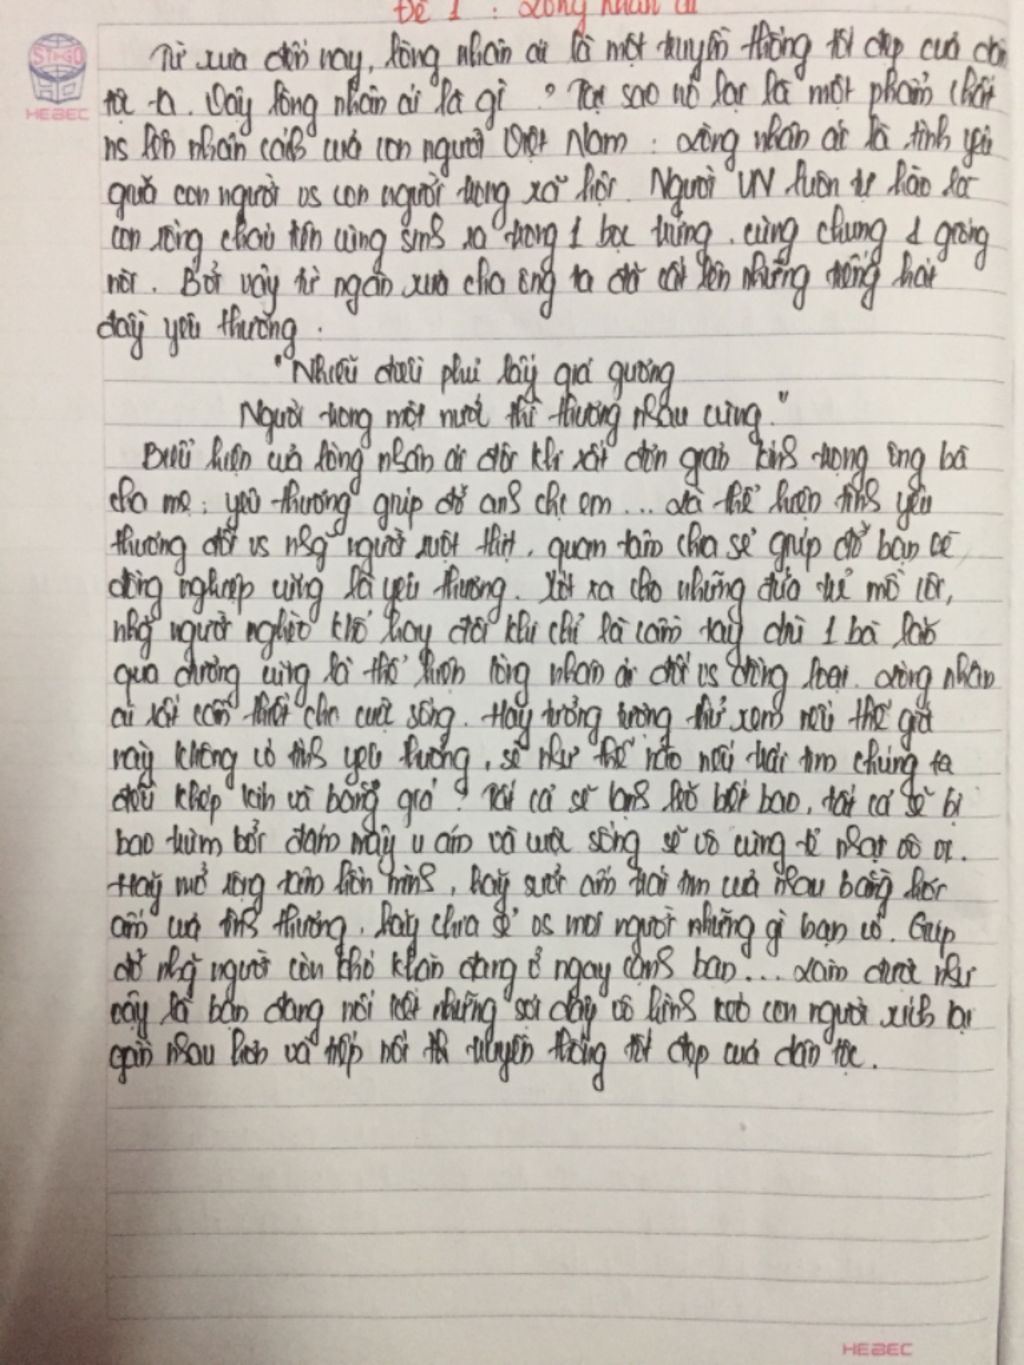 Đề 1 : Lòng nhân ái
STAGO
HEBEC
Từ xưa đến nay, lòng nhân ái là một truyền thống tốt đẹp của dân
tộc ta. Vậy lòng nhân ái là gì ? Tại sao nó lại là một phẩm chất
lên nhân cách của con người Việt Nam : Lòng nhân ái là tình yêu
giữa con người vs con người trong xã hội. Người VN luôn tự hào là
con rồng cháu tiên cùng sinh ra trong 1 bọc trứng. cùng chung 1 giống
nòi. Bởi vậy từ ngàn xưa cha ông ta đã cất lên những tiếng hát
đầy yêu thương :
"Nhiễu điều phủ lấy giá gương
Người trong một nước thì thương nhau cùng."
Biểu hiện của lòng nhân ái đôi khi rất đơn giản kính trọng ông bà
cha mẹ, yêu thương giúp đỡ anh chị em ... Là thể hiện tình yêu
thương đối vs nhg̃ người ruột thịt, quan tâm chia sẻ giúp đỡ bạn bè
đồng nghiệp cũng là yêu thương. Xót xa cho những đứa trẻ mồ côi,
nhg̃ người nghèo khổ hay đôi khi chỉ là cầm tay dắt 1 bà lão
qua đường cũng là thể hiện lòng nhân ái đối vs đồng loại. Lòng nhân
ái rất cần thiết cho cuộc sống. Hãy tưởng tượng thử xem nếu thế giới
này không có tình yêu thương, sẽ như thế nào nếu trái tim chúng ta
đều khép kín và băng giá ? Tất cả sẽ lạnh lẽo biết bao, tất cả sẽ bị
bao trùm bởi đám mây u ám và cuộc sống sẽ vô cùng tẻ nhạt vô vị.
Hãy mở rộng tâm hồn mình, hãy sưởi ấm trái tim của nhau bằng hơi
ấm của tình thương, hãy chia sẻ vs mọi người những gì bạn có. Giúp
đỡ nhg̃ người còn khó khăn đang ở ngay cạnh bạn ... Làm được như
vậy là bạn đang nối kết những sợi dây vô hình kéo con người xích lại
gần nhau hơn và tiếp nối truyền thống tốt đẹp của dân tộc.
HEBEC